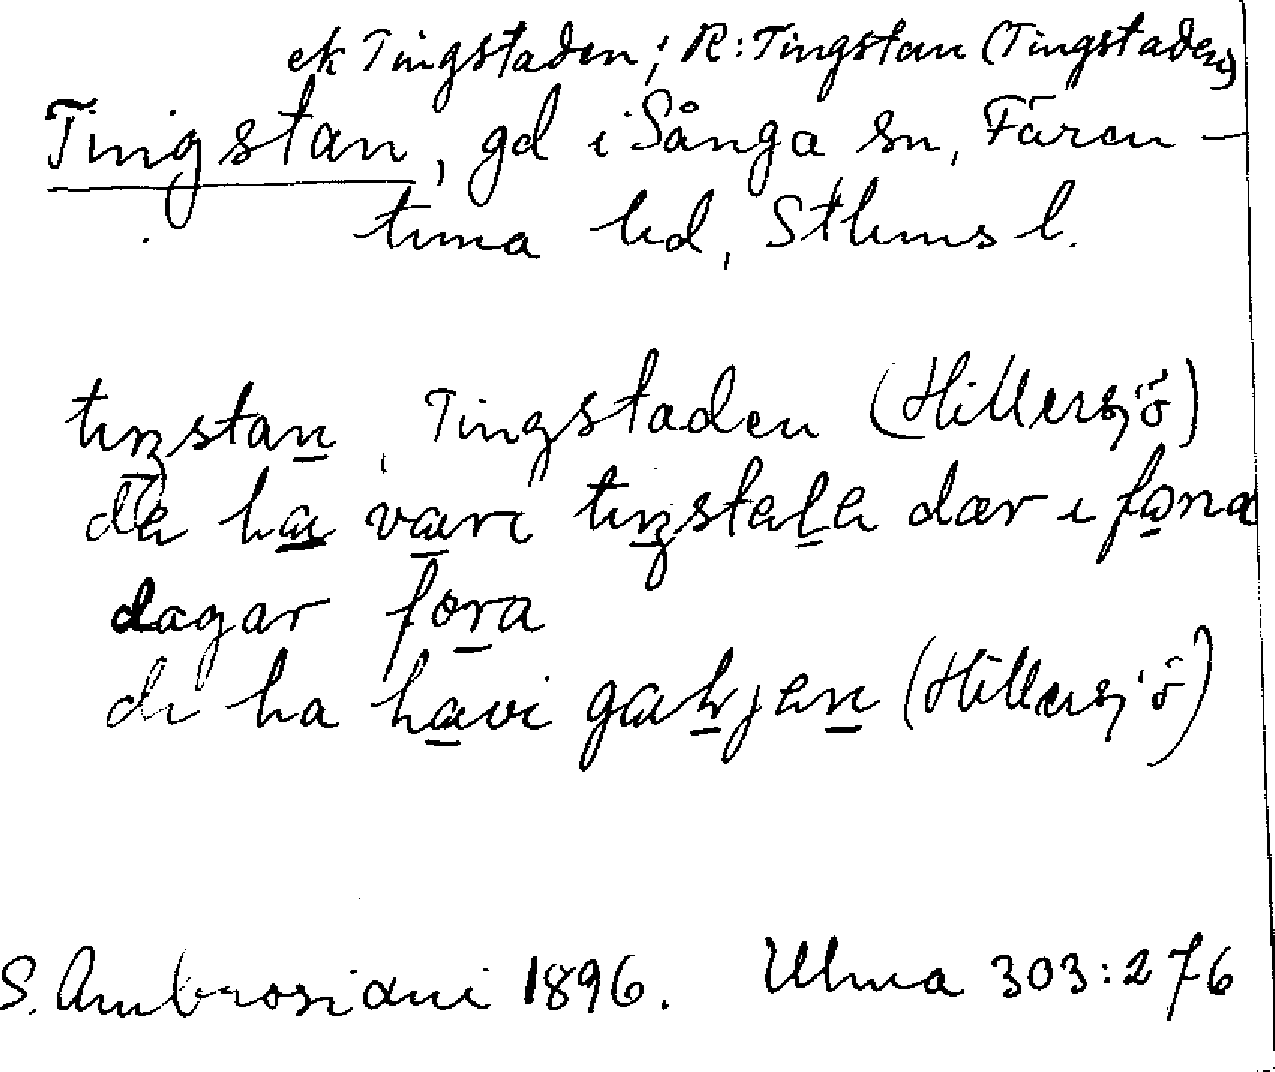 ek Tingstaden; R: Tingstan (Tingstaden)
Tingstan, gd i Sånga sn, Fären-
tuna hd, Sthms l.
tıŋstan, Tingstaden (Hillersjö)
de ha vari tıŋstele dær i forna
dagar fora
di ha havi galjen (Hillersjö)
S. Ambrosiani 1896. Ulma 303:276